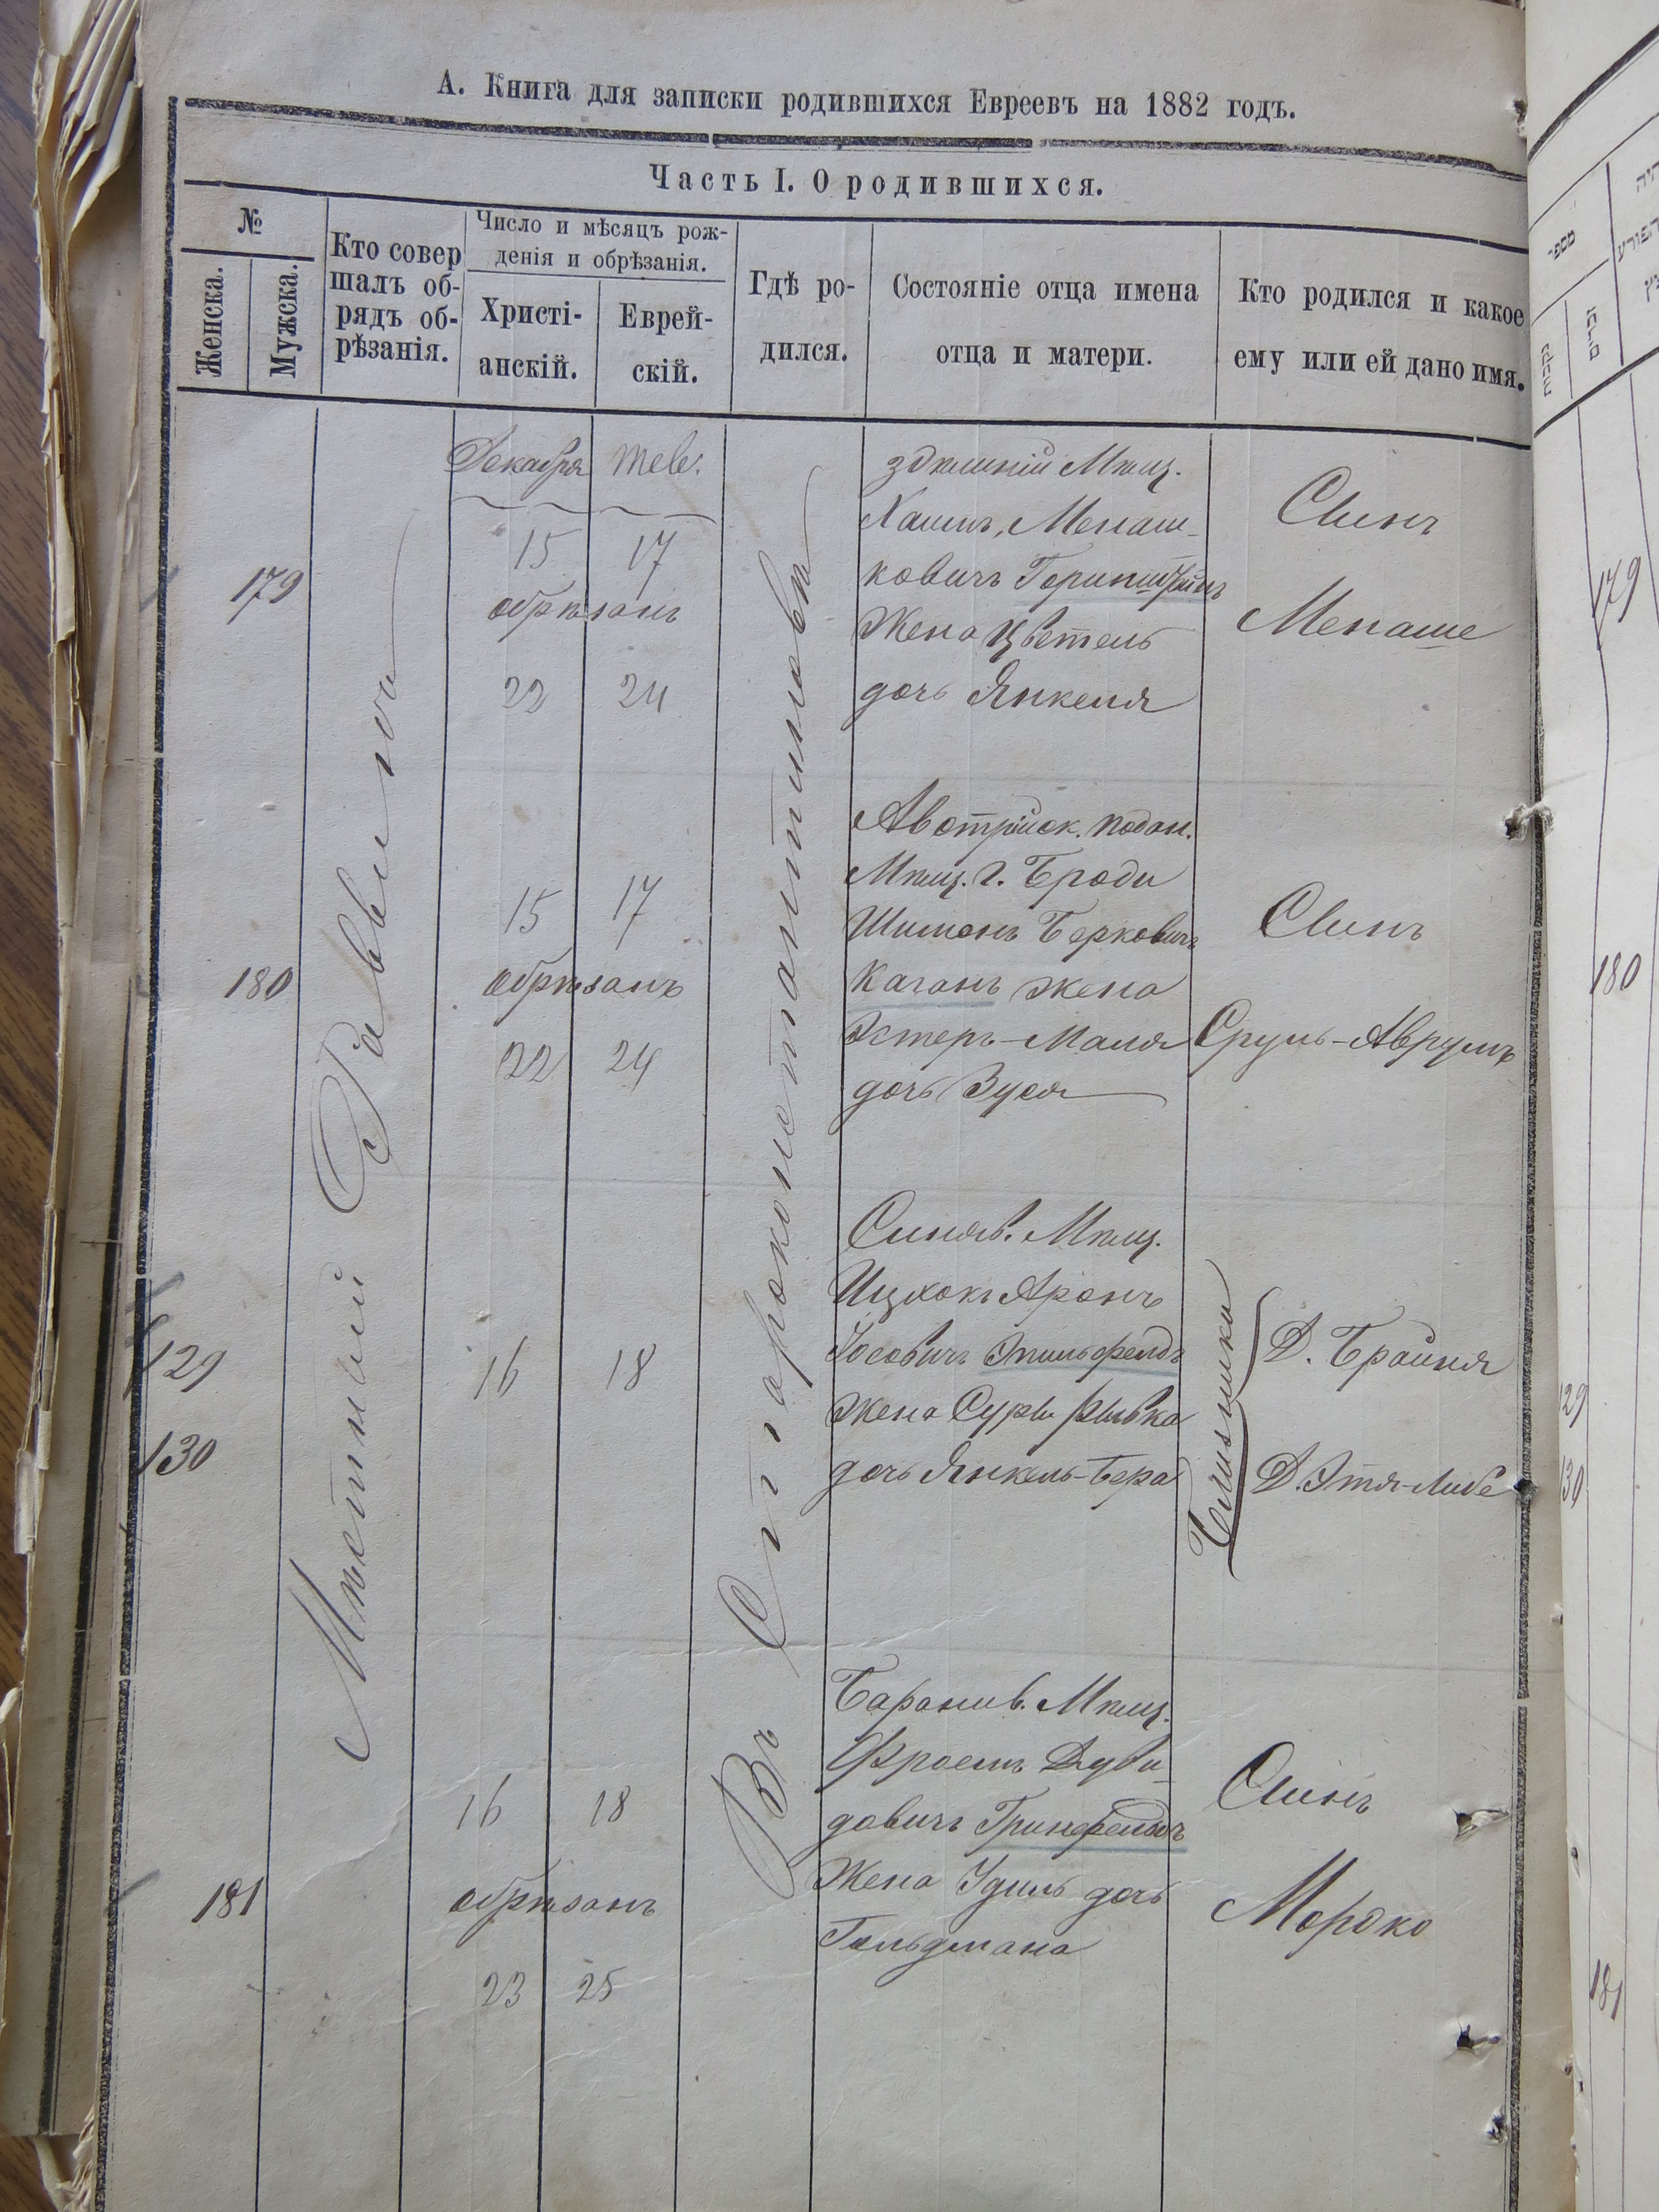 А. Книга для записки родившихся Евреевъ на 1882 годъ.
Часть I. О родившихся.
№
Женска.
Мужска.
Кто совер
шалъ об-
рядъ об-
рѣзанія.
Число и мѣсяцъ рож-
денія и обрѣзанія.
Христі-
анскій.
Еврей-
скій.
Гдѣ ро-
дился.
Состояніе отца имена
отца и матери.
Кто родился и какое
ему или ей дано имя.
Мѣстный Раввинъ
Въ Староконстантиновѣ
Декабря Тев.
179
15 17
обрѣзанъ
22 24
здѣшній Мѣщ.
Хаимъ, Менаш-
ковичъ
Жена Цветель
дочь Янкеля
Сынъ
Менаше
180
15 17
обрѣзанъ
22 24
Австрійск. подан.
Мѣщ. г. Броди
Шимонъ Берковичъ
Каганъ жена
Эстеръ-Маля
дочь Зуся
Сынъ
Сруль-Аврумъ
129
130
16 18
Синяв. Мѣщ.
Ицхокъ Аронъ
Іосовичъ Эпильфелдъ
жена Суры Рывка
дочь Янкель-Бера
Близники
Д. Брайня
Д. Этя-Либе
181
16 18
обрѣзанъ
23 25
Баранив. Мѣщ.
Фроемъ Дуви-
довичъ Гринфельдъ
Жена Удиль дочь
Гольдмана
Сынъ
Мордко
179
180
129
130
181
מספר